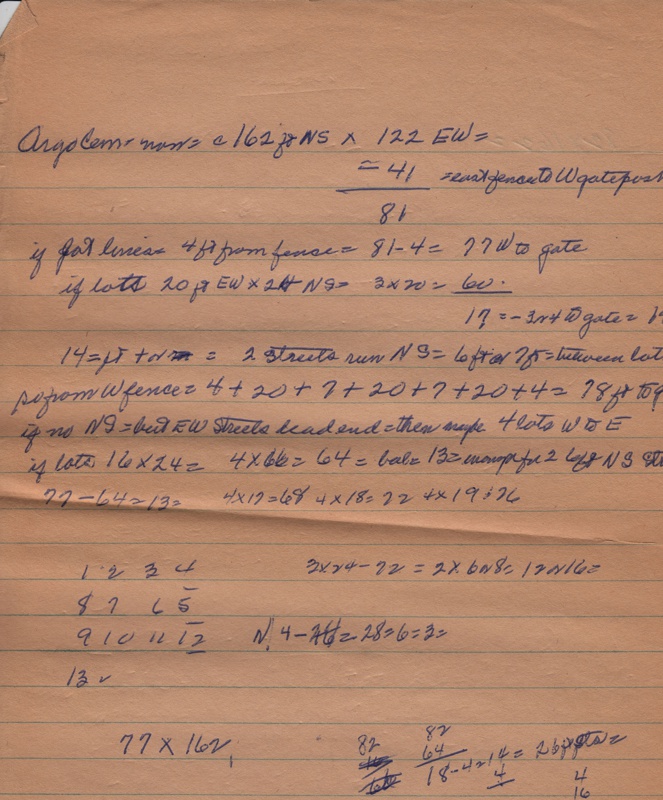 Argo Cem = now = c 162 ft NS x 122 EW =
= 41 = east fence to W gate post
81
if lot lines = 4 ft from fence = 81-4 = 77 W to gate
if lots 20 ft EW x 24 NS = 3x20 = 60.
17 = -3 or 4 to gate =
14 = ft + or = 2 Streets run NS = 6 ft or 7 ft = between lot
so from W fence = 4 + 20 + 7 + 20 + 7 + 20 + 4 = 78 ft to g
if no NS = but EW Streets dead end = then maybe 4 lots W to E
if lots 16 x 24 = 4x16 = 64 = bal = 13 = enough for 2 6 ft NS St
77-64 = 13 = 4x17 = 68 4x18 = 72 4x19 = 76
1 2 3 4 3x24-72 = 2x6 or 8 = 12 or 16 =
8 7 6 5
9 10 11 12 N. 4- = 28 = 6 = 3 =
13
77 x 162
82 82
64
18-4 = 14 = 2 6 ft
4 4
16